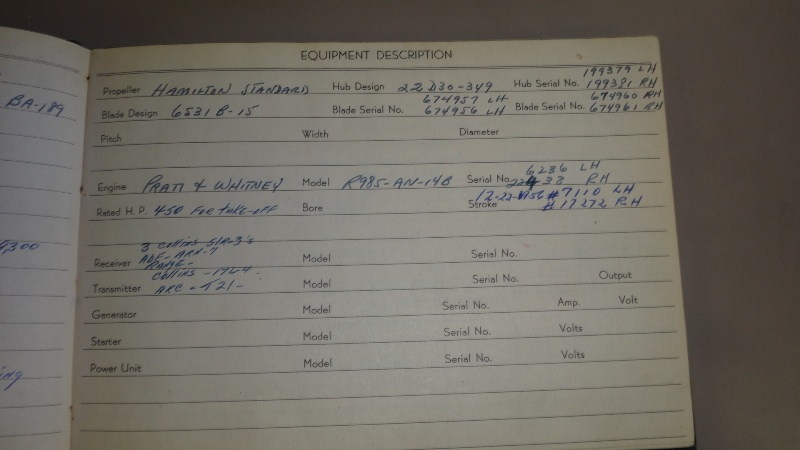 EQUIPMENT DESCRIPTION
199379 LH
Propeller HAMILTON STANDARD Hub Design 22D30-349 Hub Serial No. 199381 RH
BA-189
674957 LH 674960 RH
Blade Design 6531B-15 Blade Serial No. 674956 LH Blade Serial No. 674961 RH
Pitch Width Diameter
6236 LH
Engine PRATT & WHITNEY Model R985-AN-14B Serial No. 38 RH
12-22-1956 #7110 LH
Rated H. P. 450 FOR TAKE-OFF Bore Stroke #17272 RH
3 COLLINS 51R-3's
ADF-ARN-7
Receiver RANGE- Model Serial No.
COLLINS -17L-4-
Transmitter ARC - T21- Model Serial No. Output
Generator Model Serial No. Amp. Volt
Starter Model Serial No. Volts
Power Unit Model Serial No. Volts